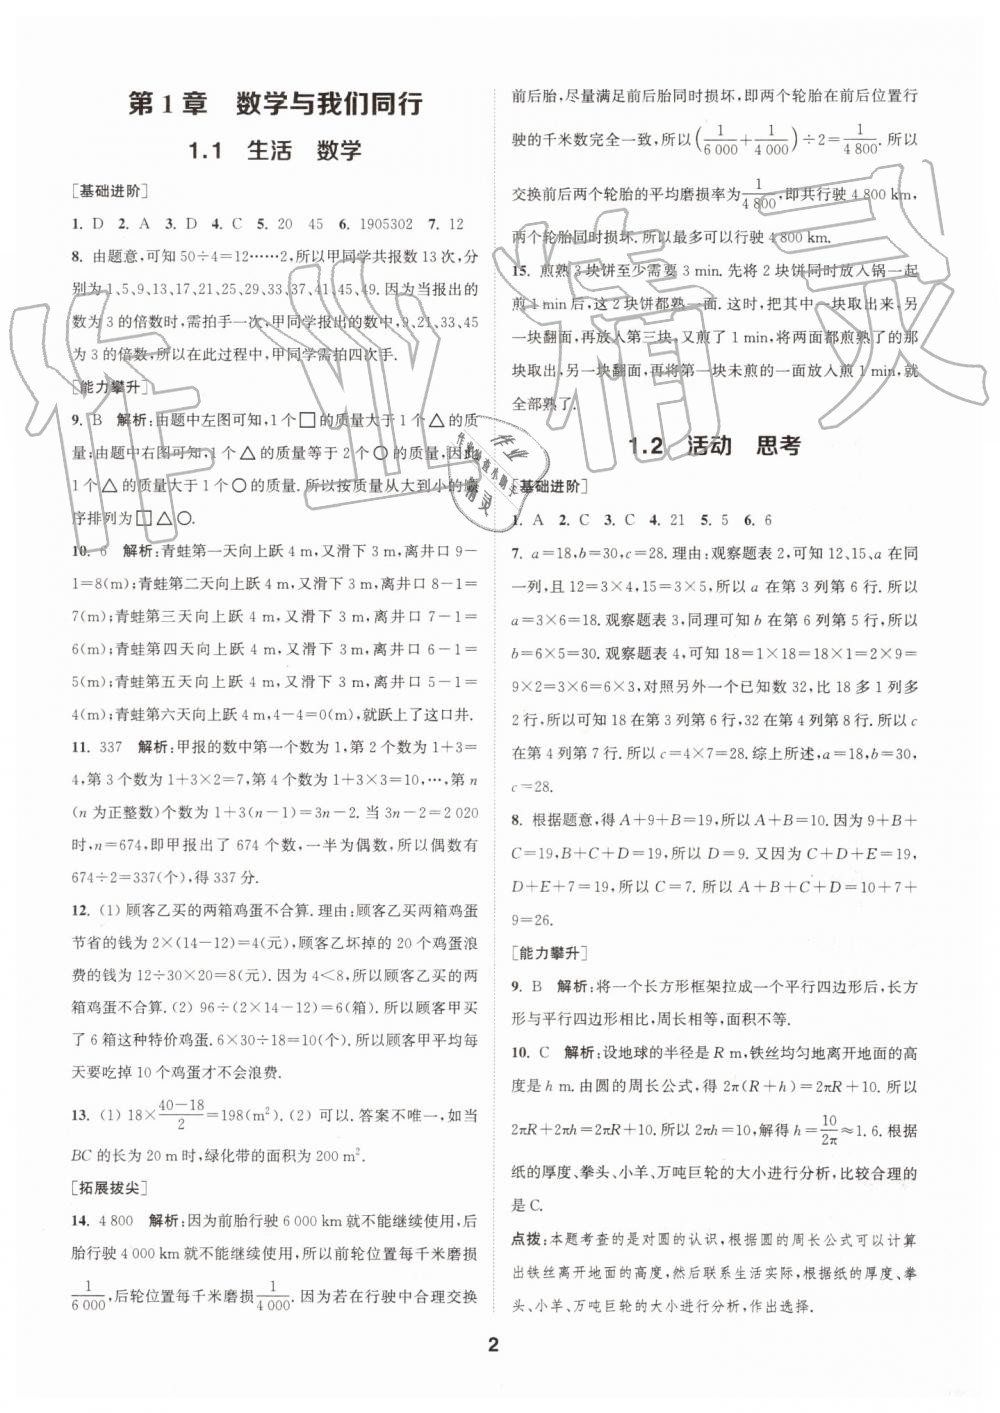 第1章 数学与我们同行
1.1 生活 数学
[基础进阶]
1. D 2. A 3. D 4. C 5. 20 45 6. 1905302 7. 12
8. 由题意,可知 50÷4=12……2,所以甲同学共报数 13 次,分
别为 1、5、9、13、17、21、25、29、33、37、41、45、49.因为当报出的
数为 3 的倍数时,需拍手一次,甲同学报出的数中,9、21、33、45
为 3 的倍数,所以在此过程中,甲同学需拍四次手.
[能力攀升]
9. B 解析:由题中左图可知,1 个□的质量大于 1 个△的质
量;由题中右图可知,1 个△的质量等于 2 个○的质量,所以
1 个△的质量大于 1 个○的质量.所以按质量从大到小的顺
序排列为□△○.
10. 6 解析:青蛙第一天向上跃 4 m,又滑下 3 m,离井口 9-
1=8(m);青蛙第二天向上跃 4 m,又滑下 3 m,离井口 8-1=
7(m);青蛙第三天向上跃 4 m,又滑下 3 m,离井口 7-1=
6(m);青蛙第四天向上跃 4 m,又滑下 3 m,离井口 6-1=
5(m);青蛙第五天向上跃 4 m,又滑下 3 m,离井口 5-1=
4(m);青蛙第六天向上跃 4 m,4-4=0(m),就跃上了这口井.
11. 337 解析:甲报的数中第一个数为 1,第 2 个数为 1+3=
4,第 3 个数为 1+3×2=7,第 4 个数为 1+3×3=10,…,第 n
(n 为正整数)个数为 1+3(n-1)=3n-2. 当 3n-2=2 020
时,n=674,即甲报出了 674 个数,一半为偶数,所以偶数有
674÷2=337(个),得 337 分.
12. (1) 顾客乙买的两箱鸡蛋不合算.理由:顾客乙买两箱鸡蛋
节省的钱为 2×(14-12)=4(元),顾客乙坏掉的 20 个鸡蛋浪
费的钱为 12÷30×20=8(元).因为 4<8,所以顾客乙买的两
箱鸡蛋不合算.(2) 96÷(2×14-12)=6(箱).所以顾客甲买
了 6 箱这种特价鸡蛋.6×30÷18=10(个).所以顾客甲平均每
天要吃掉 10 个鸡蛋才不会浪费.
13. (1) 18×(40-18)/2=198(m²).(2) 可以. 答案不唯一,如当
BC 的长为 20 m 时,绿化带的面积为 200 m².
[拓展拔尖]
14. 4 800 解析:因为前胎行驶 6 000 km 就不能继续使用,后
胎行驶 4 000 km 就不能继续使用,所以前轮位置每千米磨损
1/6 000,后轮位置每千米磨损 1/4 000. 因为若在行驶中合理交换
前后胎,尽量满足前后胎同时损坏,即两个轮胎在前后位置行
驶的千米数完全一致,所以(1/6 000+1/4 000)÷2=1/4 800. 所以
交换前后两个轮胎的平均磨损率为 1/4 800,即共行驶 4 800 km,
两个轮胎同时损坏.所以最多可以行驶 4 800 km.
15. 煎熟 3 块饼至少需要 3 min. 先将 2 块饼同时放入锅一起
煎 1 min 后,这 2 块饼都熟一面. 这时,把其中一块取出来,另
一块翻面,再放入第三块,又煎了 1 min,将两面都煎熟了的那
块取出,另一块翻面,再将第一块未煎的一面放入煎 1 min,就
全部熟了.
1.2 活动 思考
[基础进阶]
1. A 2. C 3. C 4. 21 5. 5 6. 6
7. a=18,b=30,c=28. 理由:观察题表 2,可知 12、15、a 在同
一列,且 12=3×4,15=3×5,所以 a 在第 3 列第 6 行.所以
a=3×6=18.观察题表 3,同理可知 b 在第 6 列第 5 行,所以
b=6×5=30.观察题表 4,可知 18=1×18=18×1=2×9=
9×2=3×6=6×3,对照另外一个已知数 32,比 18 多 1 列多
2 行,所以可知 18 在第 3 列第 6 行,32 在第 4 列第 8 行.所以 c
在第 4 列第 7 行.所以 c=4×7=28.综上所述,a=18,b=30,
c=28.
8. 根据题意,得 A+9+B=19,所以 A+B=10. 因为 9+B+
C=19,B+C+D=19,所以 D=9. 又因为 C+D+E=19,
D+E+7=19,所以 C=7. 所以 A+B+C+D=10+7+
9=26.
[能力攀升]
9. B 解析:将一个长方形框架拉成一个平行四边形后,长方
形与平行四边形相比,周长相等,面积不等.
10. C 解析:设地球的半径是 R m,铁丝均匀地离开地面的高
度是 h m.由圆的周长公式,得 2π(R+h)=2πR+10. 所以
2πR+2πh=2πR+10. 所以 2πh=10,解得 h=10/2π≈1.6.根据
纸的厚度、拳头、小羊、万吨巨轮的大小进行分析,比较合理的
是 C.
点拨:本题考查的是对圆的认识,根据圆的周长公式可以计算
出铁丝离开地面的高度,然后联系生活实际,根据纸的厚度、拳
头、小羊、万吨巨轮的大小进行分析,作出选择.
2
作业精灵
作业
精灵